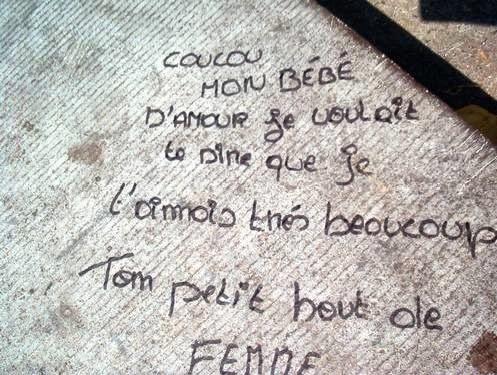 COUCOU
MON BÉBÉ
D'AMOUR je voulait
te dire que je
t'aimais très beaucoup
Tom petit bout de
FEMME